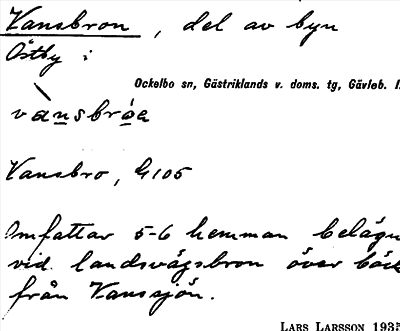 Vansbron, del av byn
Östby i
Ockelbo sn, Gästriklands v. doms. tg, Gävleb. l.
vànsbroa
Vansbro, G105
Omfattar 5-6 hemman beläg
vid landsvägsbron över bäck
från Vanssjön.
LARS LARSSON 1935